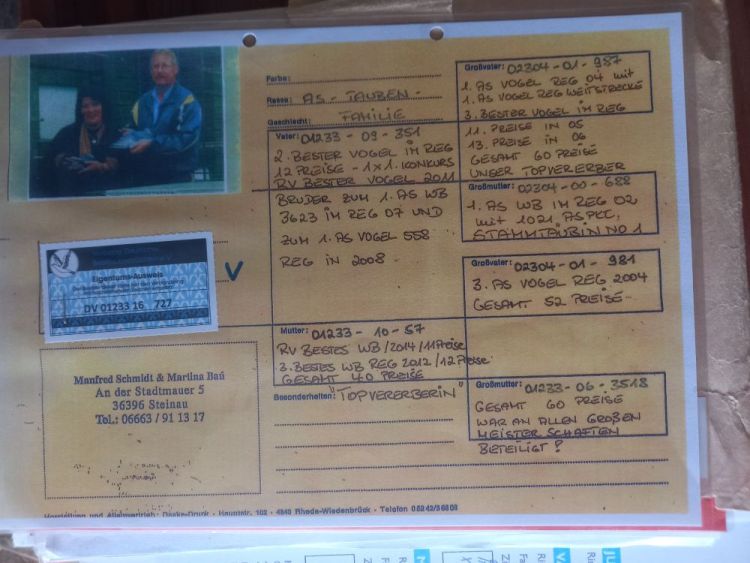 Farbe:
Rasse: AS - TAUBEN -
Geschlecht: FAMILIE
Vater: 01233 - 09 - 351
2. BESTER VOGEL IM REG
12 PREISE - 1 x 1. KONKURS
RV BESTER VOGEL 2011
BRUDER ZUM 1. AS WB
3623 IM REG 07 UND
ZUM 1. AS VOGEL 558
REG IN 2008 -
Mutter: 01233 - 10 - 57
RV BESTES WB/2014/11 Preise
3. BESTES WB REG 2012/12 Preise
GESAMT 40 PREISE
Besonderheiten: "TOPVERERBERIN"
Großvater: 02304 - 01 - 987
1. AS VOGEL REG 04 mit
1. AS VOGEL REG WEITSTRECKE
3. BESTER VOGEL IM REG
11. PREISE IN 05
13. PREISE IN 06
GESAMT 60 PREISE
UNSER TOPVERERBER
Großmutter: 02304 - 00 - 688
1. AS WB IM REG 02
mit 1021 AS PKT,
STAMMTÄUBIN NO 1
Großvater: 02304 - 01 - 981
3. AS VOGEL REG 2004
GESAMT 52 PREISE -
Großmutter: 01233 - 06 - 3518
GESAMT 60 PREISE
WAR AN ALLEN GROßEN
MEISTERSCHAFTEN
BETEILIGT!
Eigentums-Ausweis
DV 01233 16 727
V
Manfred Schmidt & Martina Baú
An der Stadtmauer 5
36396 Steinau
Tel.: 06663 / 91 13 17
Herstellung und Alleinvertrieb: Deske-Druck - Hauptstr. 102 - 4840 Rheda-Wiedenbrück - Telefon 05242/36808